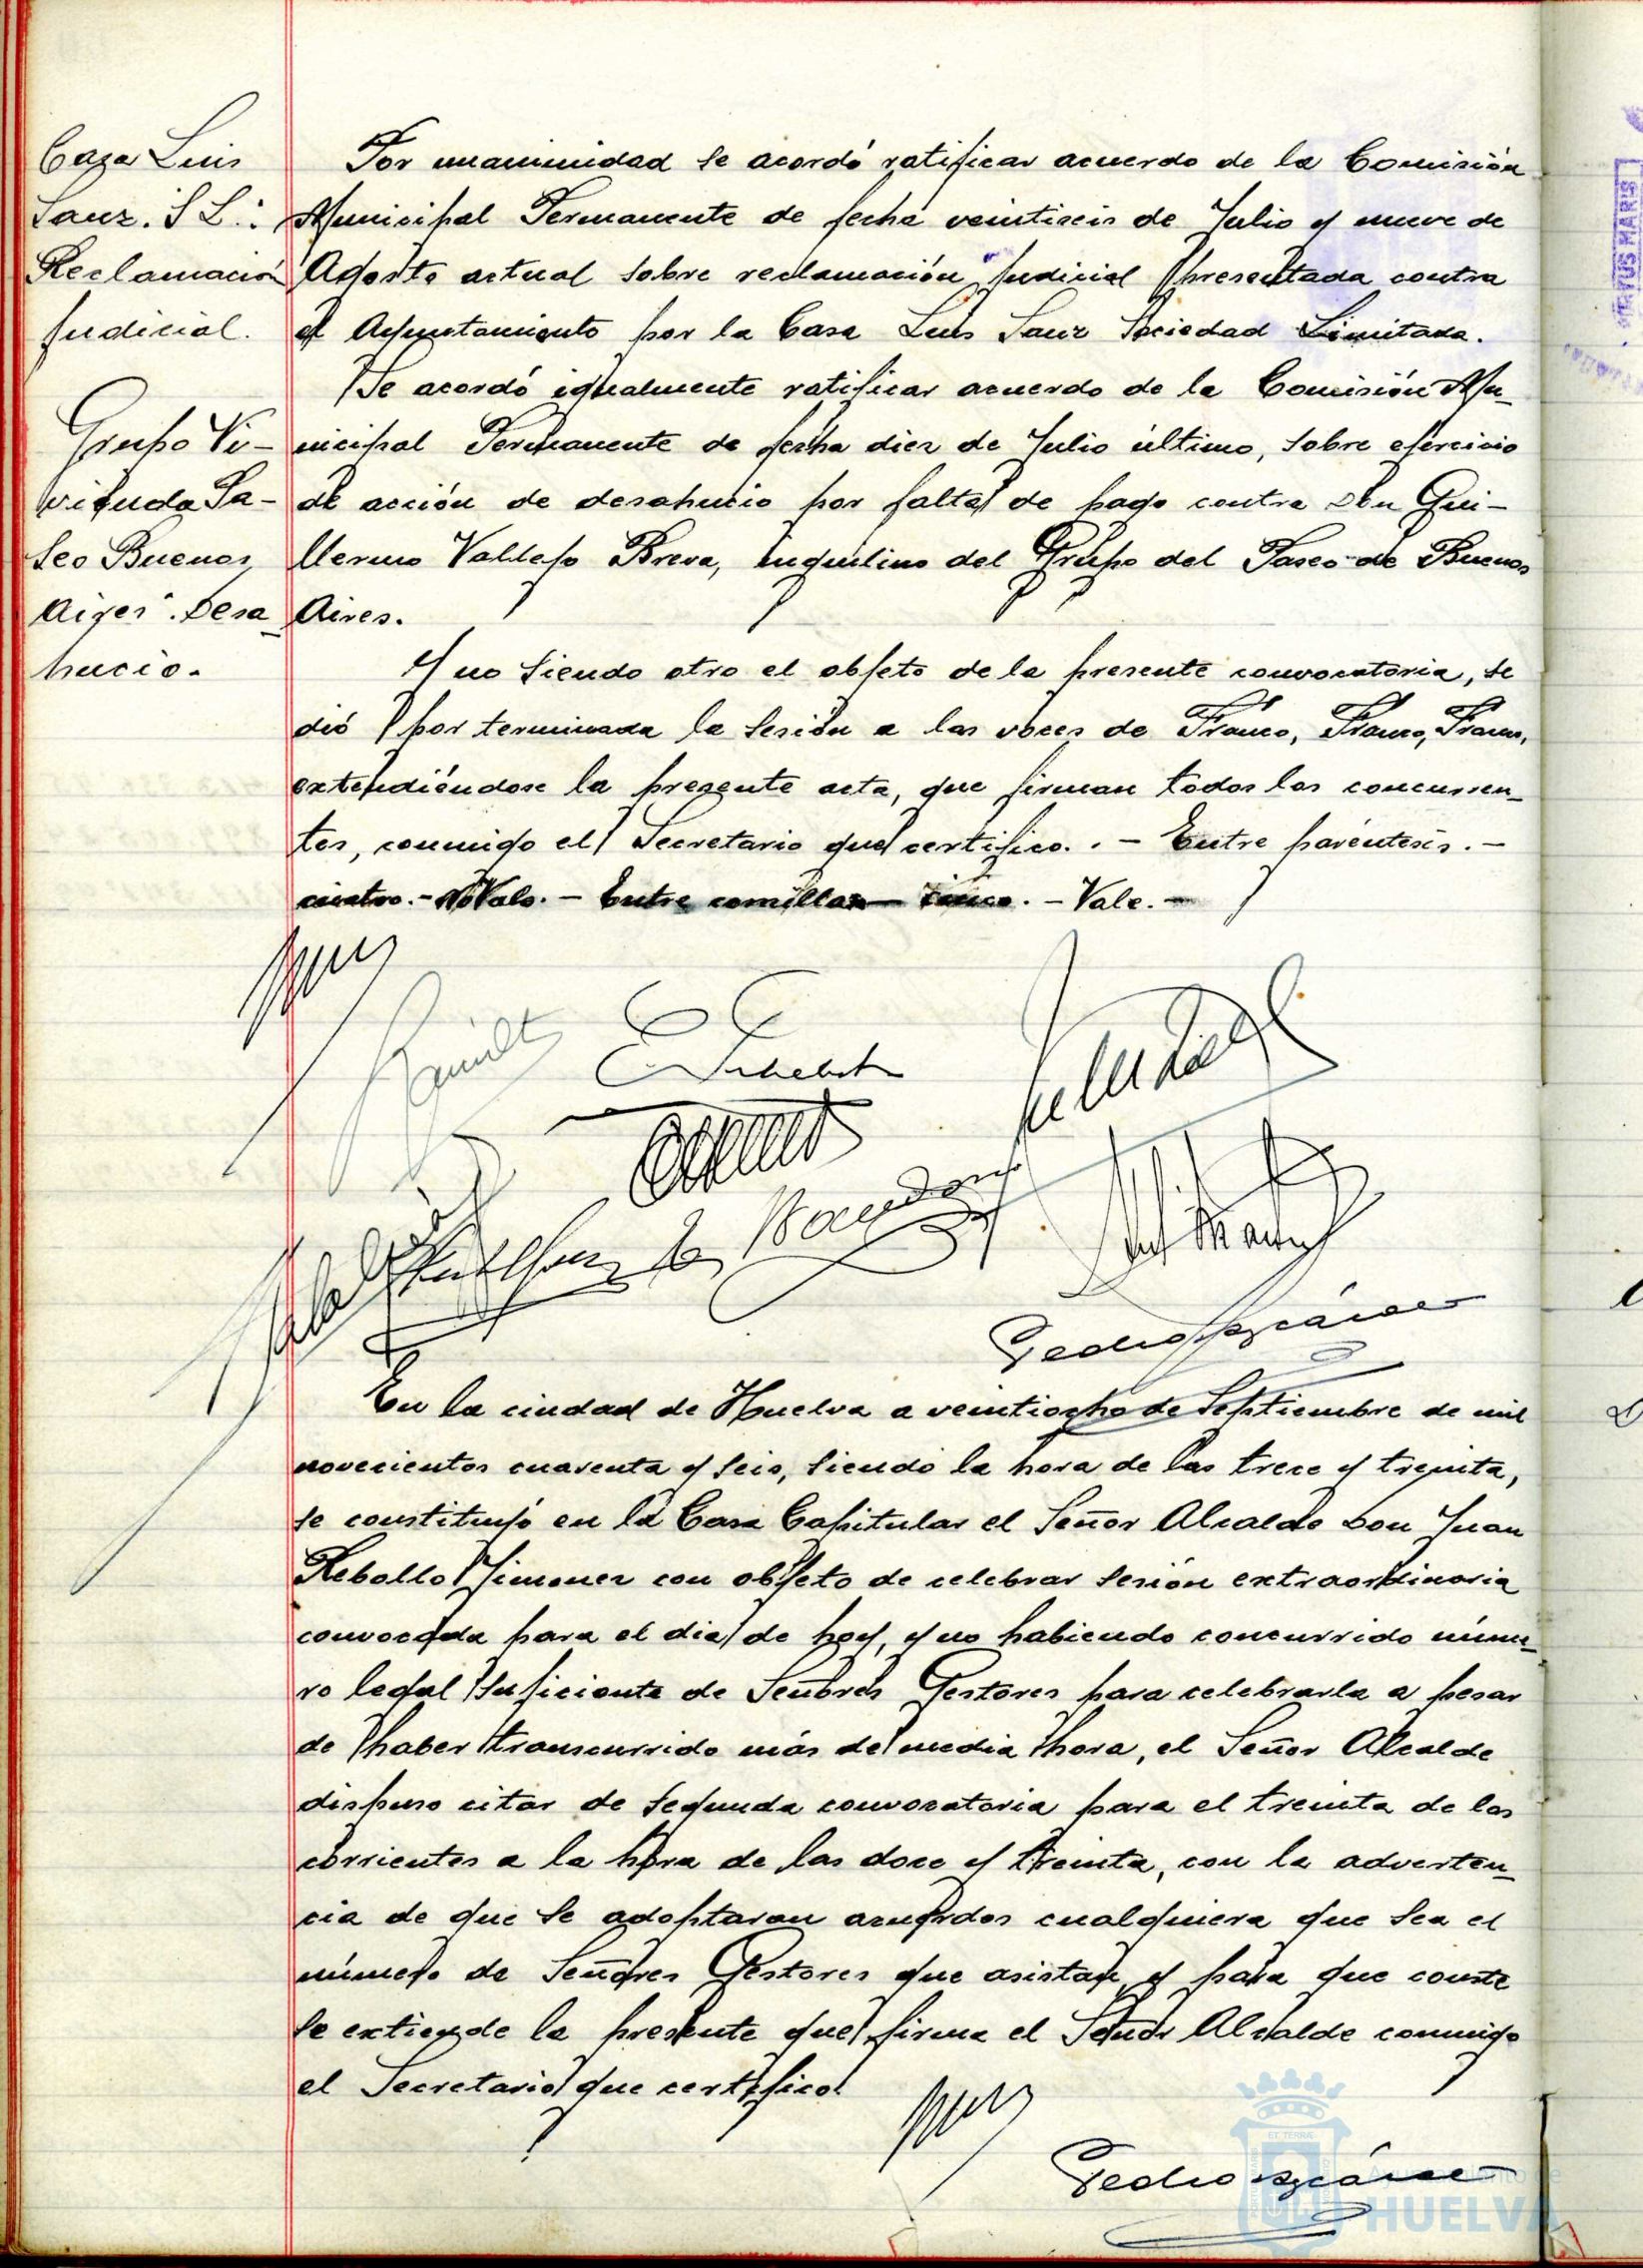 Casa Luis
Sanz. S L.:
Reclamación
judicial.
Por unanimidad se acordó ratificar acuerdo de la Comisión
Municipal Permanente de fecha veintiseis de Julio y nueve de
Agosto actual sobre reclamación judicial presentada contra
el Ayuntamiento por la Casa Luis Sanz Sociedad Limitada.
Grupo Vi-
vienda Pa-
seo Buenos
Aires. Desa-
hucio.
Se acordó igualmente ratificar acuerdo de la Comisión Mu-
nicipal Permanente de fecha diez de Julio último, sobre ejercicio
de acción de desahucio por falta de pago contra Don Gui-
llermo Vallejo Breva, inquilino del Grupo del Paseo de Buenos
Aires.
Y no siendo otro el objeto de la presente convocatoria, se
dió por terminada la sesión a las voces de Franco, Franco, Franco,
extendiéndose la presente acta, que firman todos los concurren-
tes, conmigo el Secretario que certifico. . - Entre paréntesis. -
cuatro. - No Vale. - Entre comillas - cinco. - Vale. -
En la ciudad de Huelva a veintiocho de Septiembre de mil
novecientos cuarenta y seis, siendo la hora de las trece y treinta,
se constituyó en la Casa Capitular el Señor Alcalde Don Juan
Rebollo Jimenez con objeto de celebrar sesión extraordinaria
convocada para el dia de hoy, y no habiendo concurrido núme-
ro legal suficiente de Señores Gestores para celebrarla a pesar
de haber transcurrido más de media hora, el Señor Alcalde
dispuso citar de segunda convocatoria para el treinta de los
corrientes a la hora de las doce y treinta, con la adverten-
cia de que se adoptaran acuerdos cualquiera que sea el
número de Señores Gestores que asistan, y para que conste
se extiende la presente que firma el Señor Alcalde conmigo
el Secretario que certifico.
HUELVA